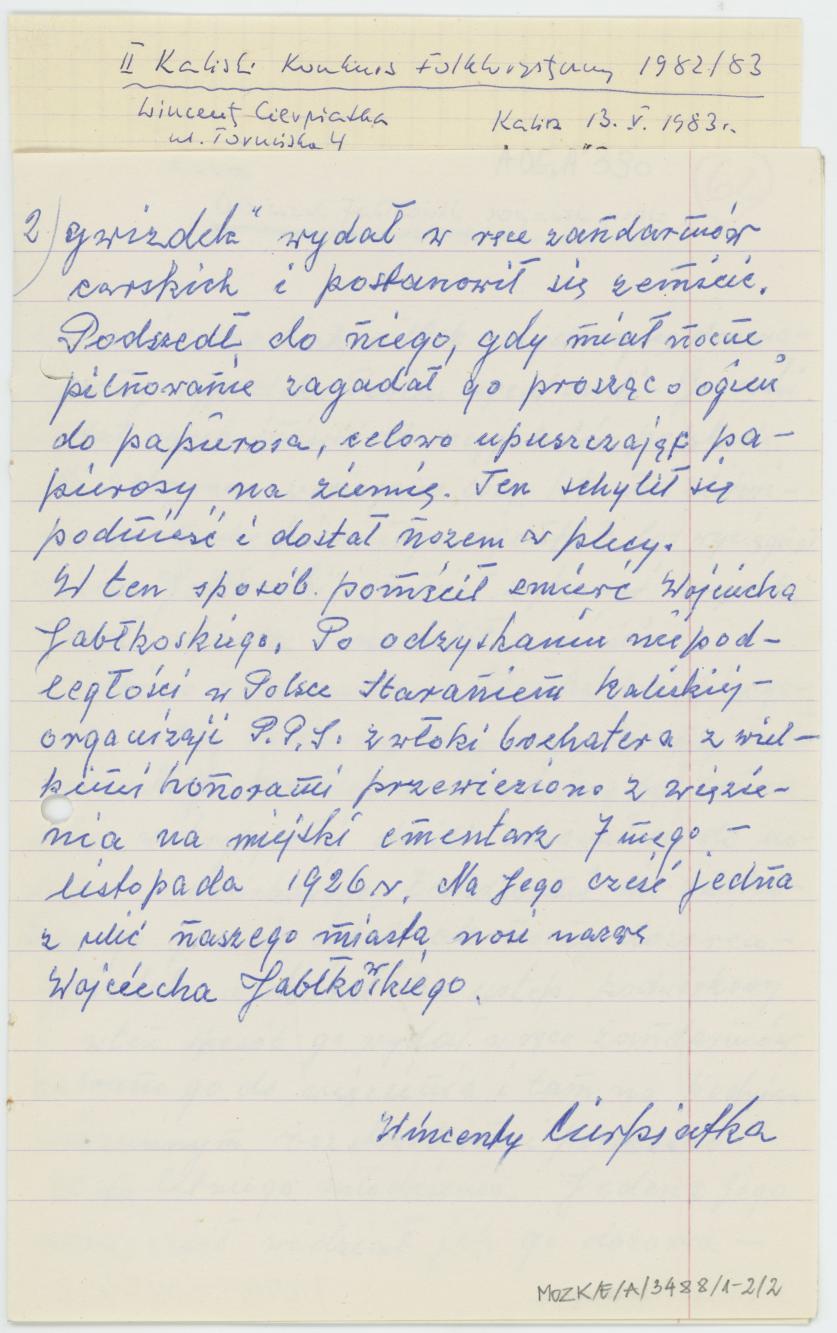 II Kaliski Konkurs Folklorystyczny 1982/83
Wincenty Cierpiatka
ul. Toruńska 4
Kalisz 13. V. 1983 r.
2) gwizdek" wydał w ręce żandarmów
carskich i postanowił się zemścić.
Podszedł do niego, gdy miał nocne
pilnowanie zagadał go prosząc o ogień
do papierosa, celowo upuszczając pa-
pierosy na ziemię. Ten schylił się
podnieść i dostał nożem w plecy.
W ten sposób pomścił śmierć Wojciecha
Jabłkoskiego. Po odzyskaniu niepod-
ległości w Polsce Staraniem kaliskiej-
organizaji P.P.S. zwłoki bochatera z wiel-
kimi honorami przewieziono z więzie-
nia na miejski cmentarz 7 mego -
listopada 1926 r. Na Jego cześć jedna
z ulic naszego miasta nosi nazwę
Wojciecha Jabłkowskiego.
Wincenty Cierpiatka
MOZK/E/A/3488/1-2/2